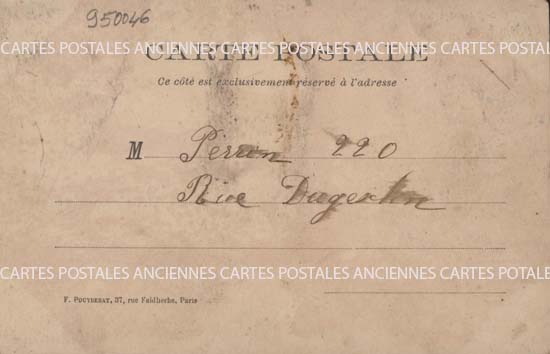 950046
CARTES POSTALES ANCIENNES CARTES POSTALES ANCIENNES CARTES POSTALES
CARTE POSTALE
Ce côté est exclusivement réservé à l'adresse
M Perron 220
Rue
CARTES POSTALES ANCIENNES CARTES POSTALES ANCIENNES CARTES POTALES
F. POUYDEBAT, 37, rue Faidherbe, Paris